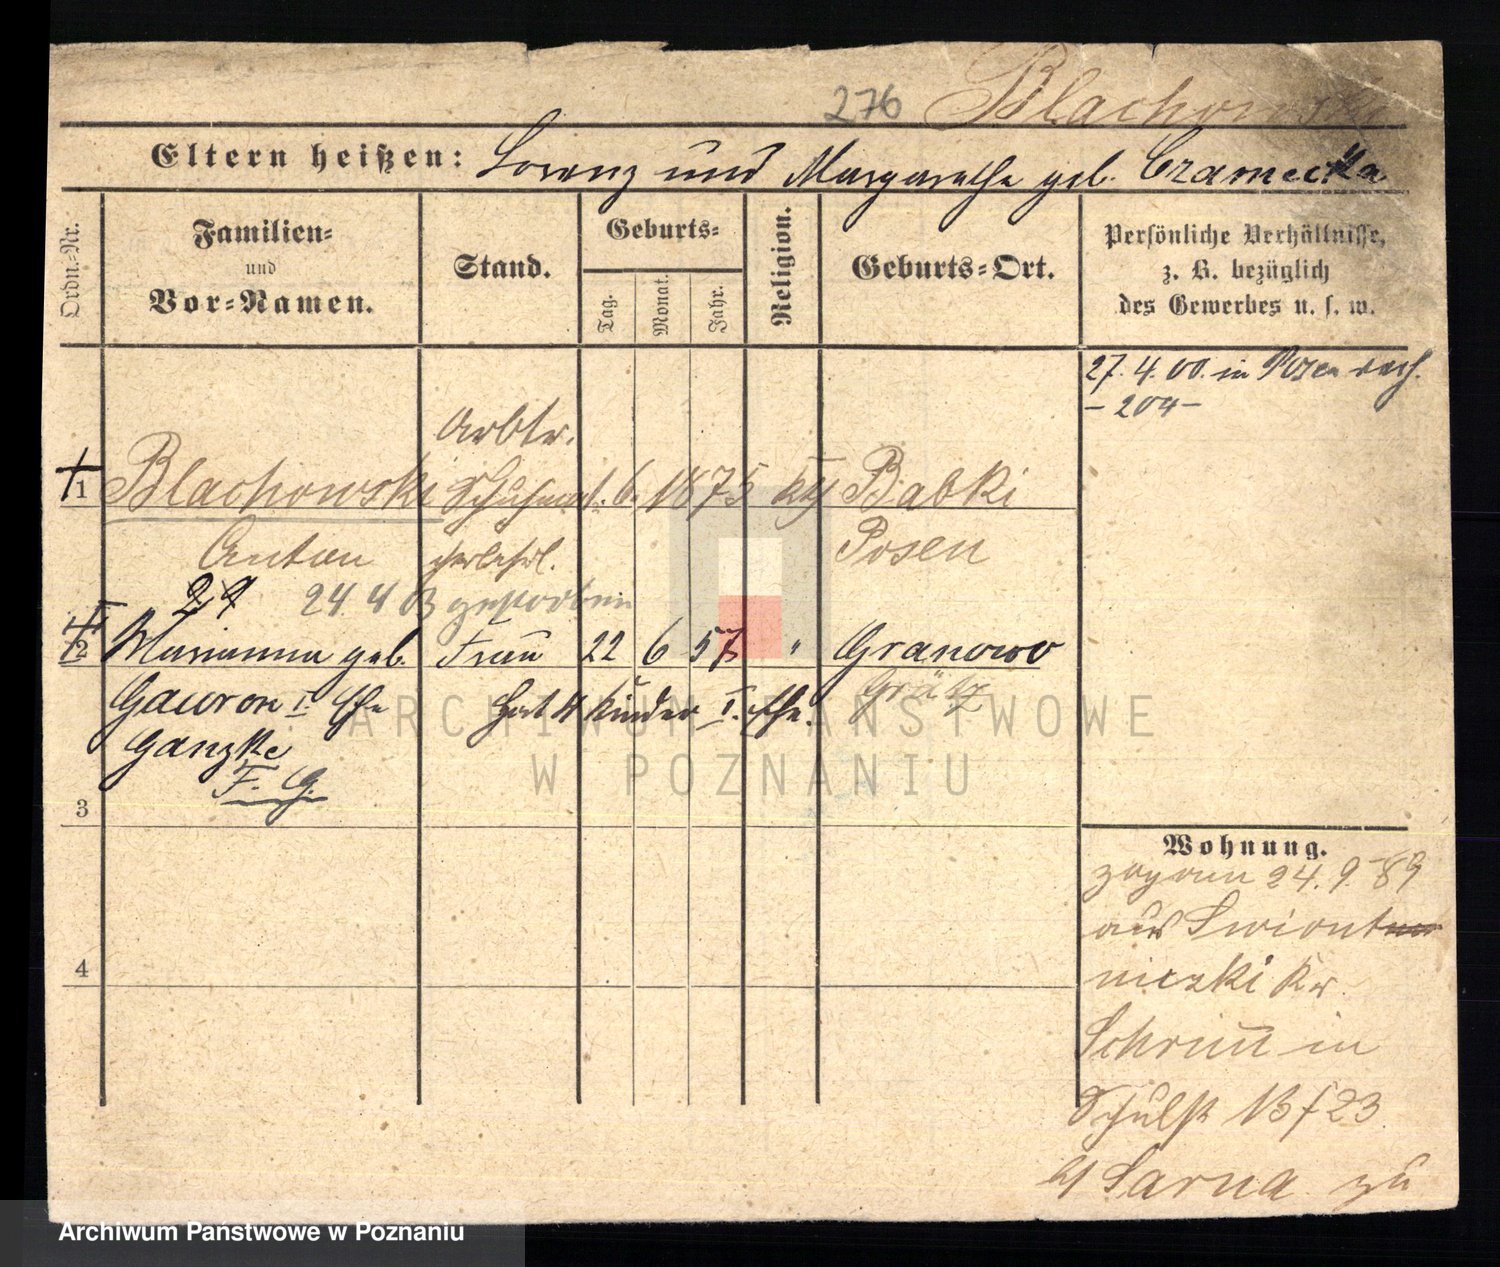 276 Blachowski
Eltern heißen: Lorenz und Margarethe geb. Czarnecka
Ordn.-Nr.
Familien-
und
Vor-Namen.
Stand.
Geburts-
Tag.
Monat.
Jahr.
Religion.
Geburts-Ort.
Persönliche Verhältnisse,
z. B. bezüglich
des Gewerbes u. s. w.
27. 4. 00. in Posen
– 204 –
Arbtr.
1 Blachowski 6. 1875 Babki
Anton Posen
24 4 gestorben
2 Marianna geb. Frau 22 6 57 " Granowo
Gawron I Ehe Hat 4 Kinder I. Ehe. Grätz
Ganzke
F. G.
3
4
Wohnung.
zugezogen 24. 9. 89
aus Swiont
niczki Kr
Schrim in
Schulst 13 / 23
Sarna zu
ARCHIWUM PAŃSTWOWE
W POZNANIU
Archiwum Państwowe w Poznaniu